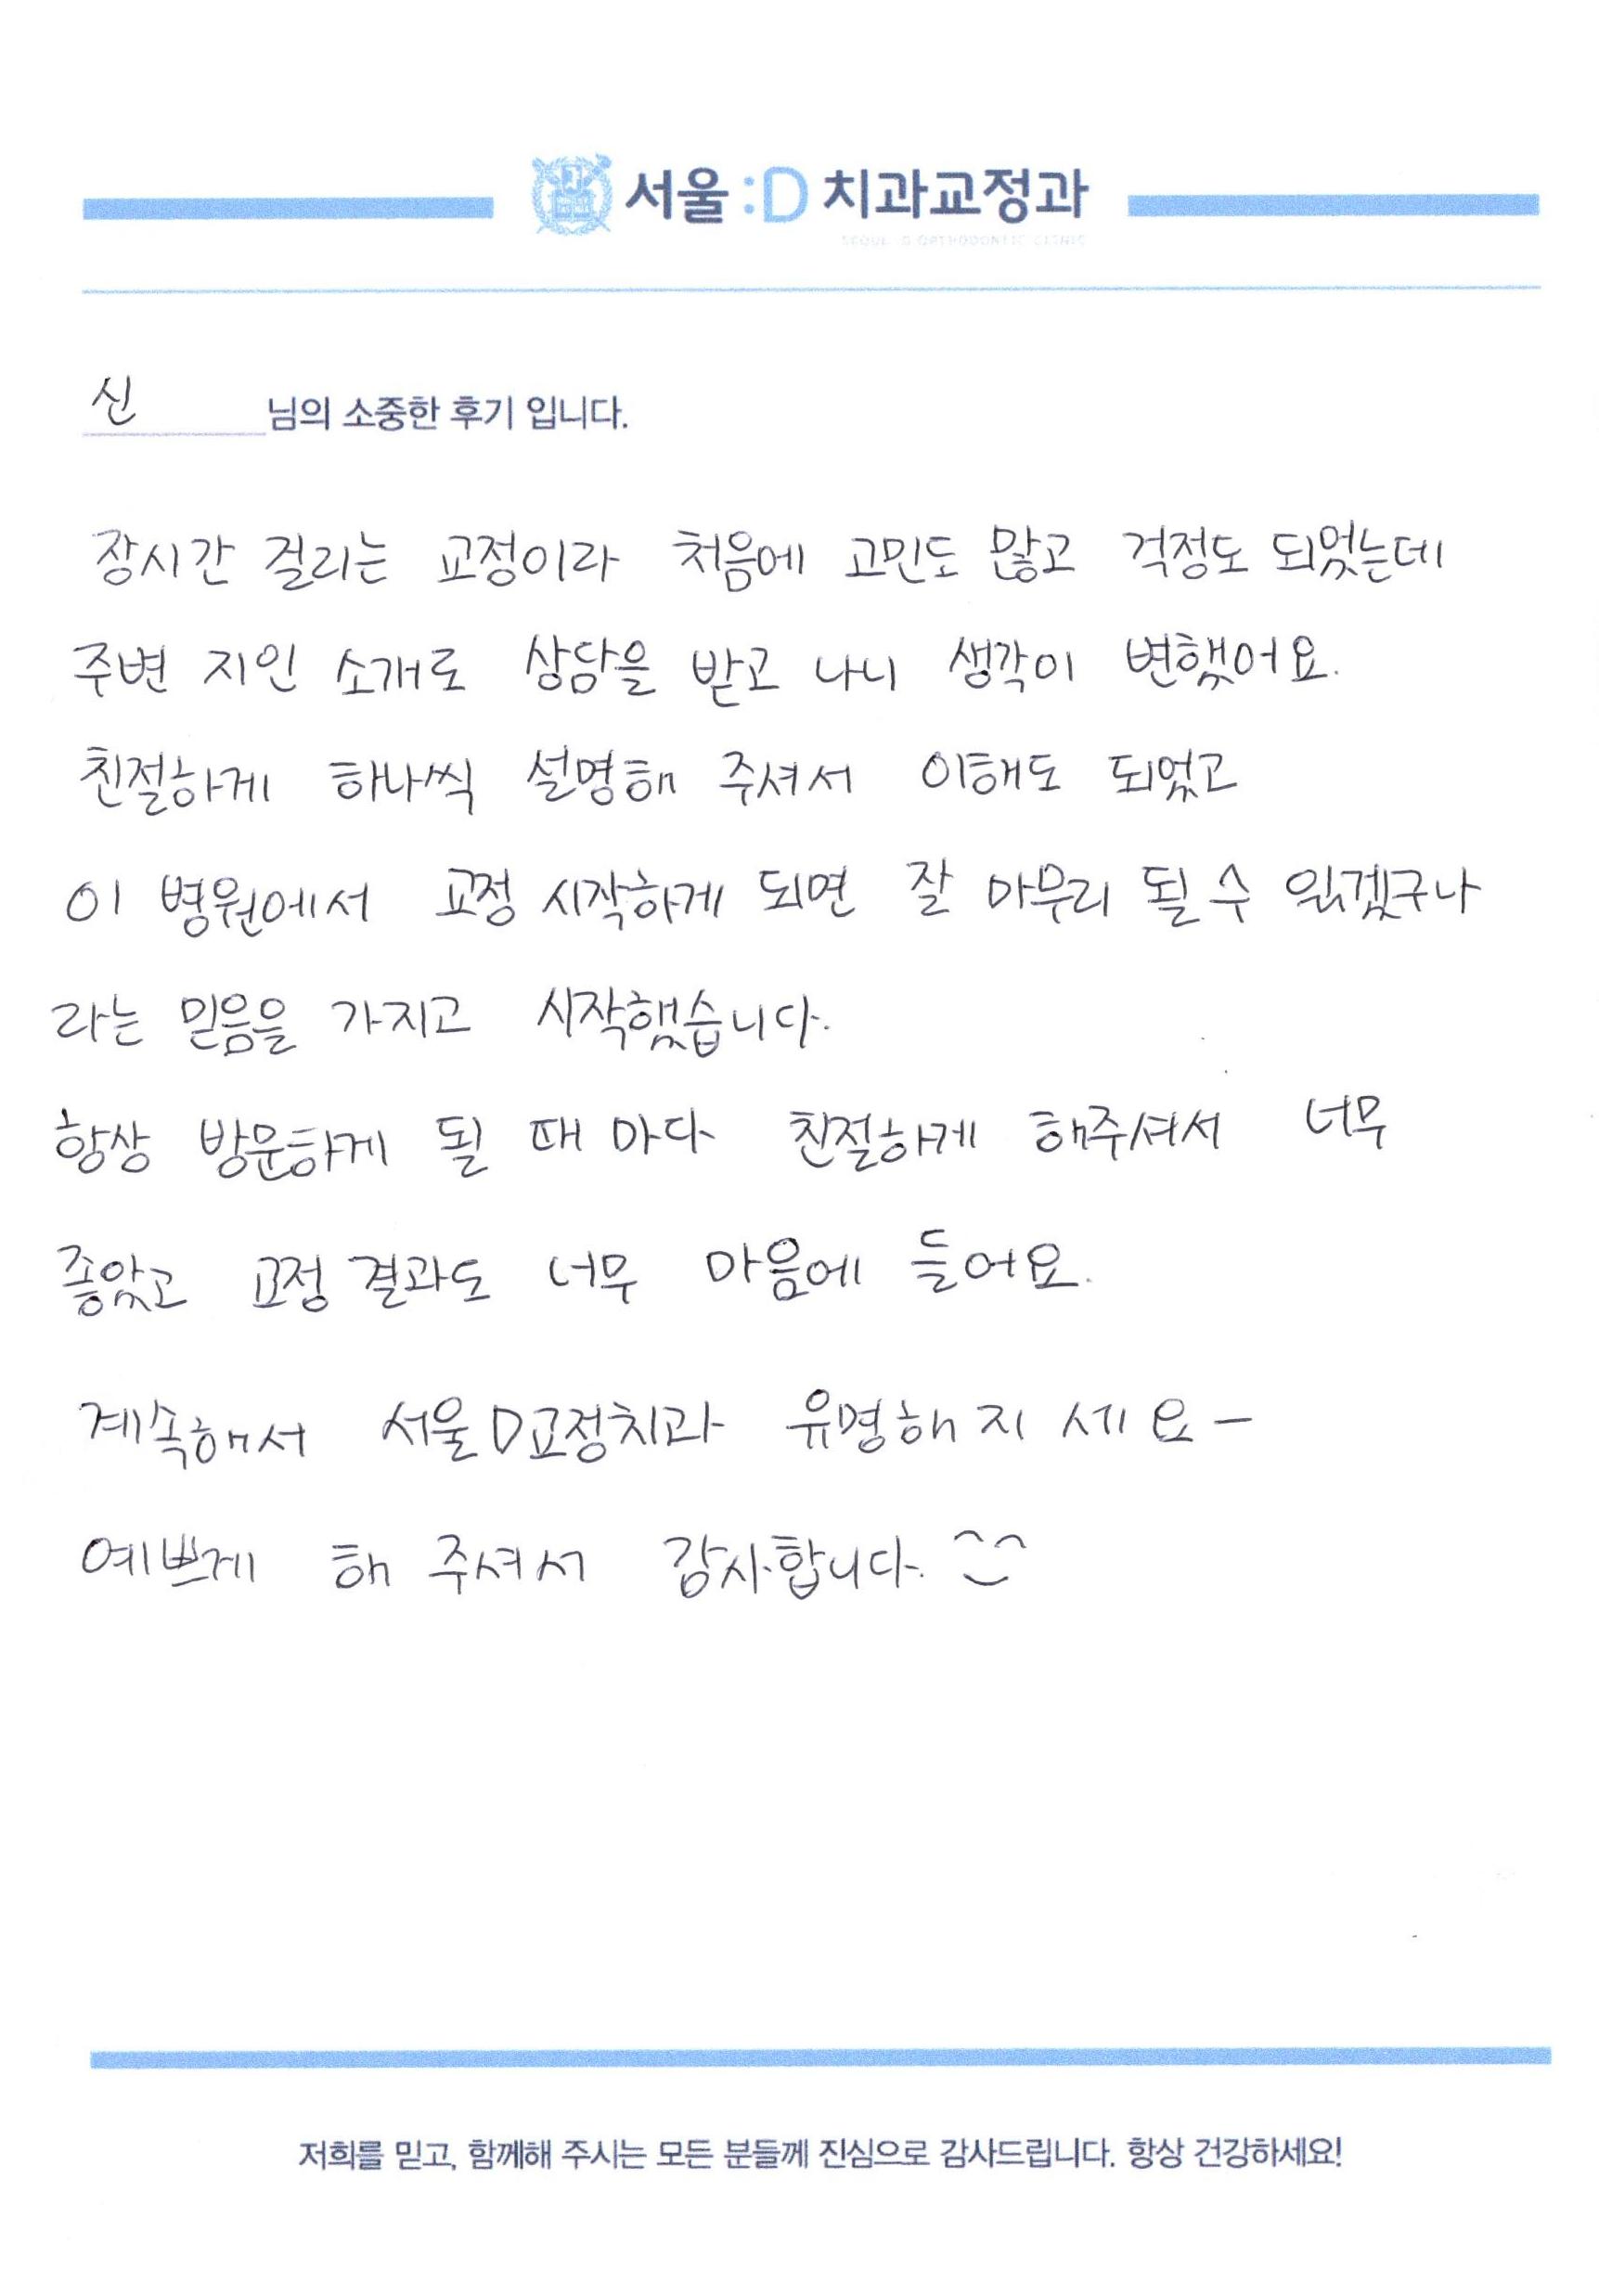 서울:D 치과교정과
SEOUL :D ORTHODONTIC CLINIC
신 님의 소중한 후기 입니다.
장시간 걸리는 교정이라 처음에 고민도 많고 걱정도 되었는데
주변 지인 소개로 상담을 받고 나니 생각이 변했어요.
친절하게 하나씩 설명해 주셔서 이해도 되었고
이 병원에서 교정 시작하게 되면 잘 마무리 될 수 있겠구나
라는 믿음을 가지고 시작했습니다.
항상 방문하게 될 때 마다 친절하게 해주셔서 너무
좋았고 교정 결과도 너무 마음에 들어요.
계속해서 서울D교정치과 유명해지세요-
예쁘게 해 주셔서 감사합니다.
저희를 믿고, 함께해 주시는 모든 분들께 진심으로 감사드립니다. 항상 건강하세요!